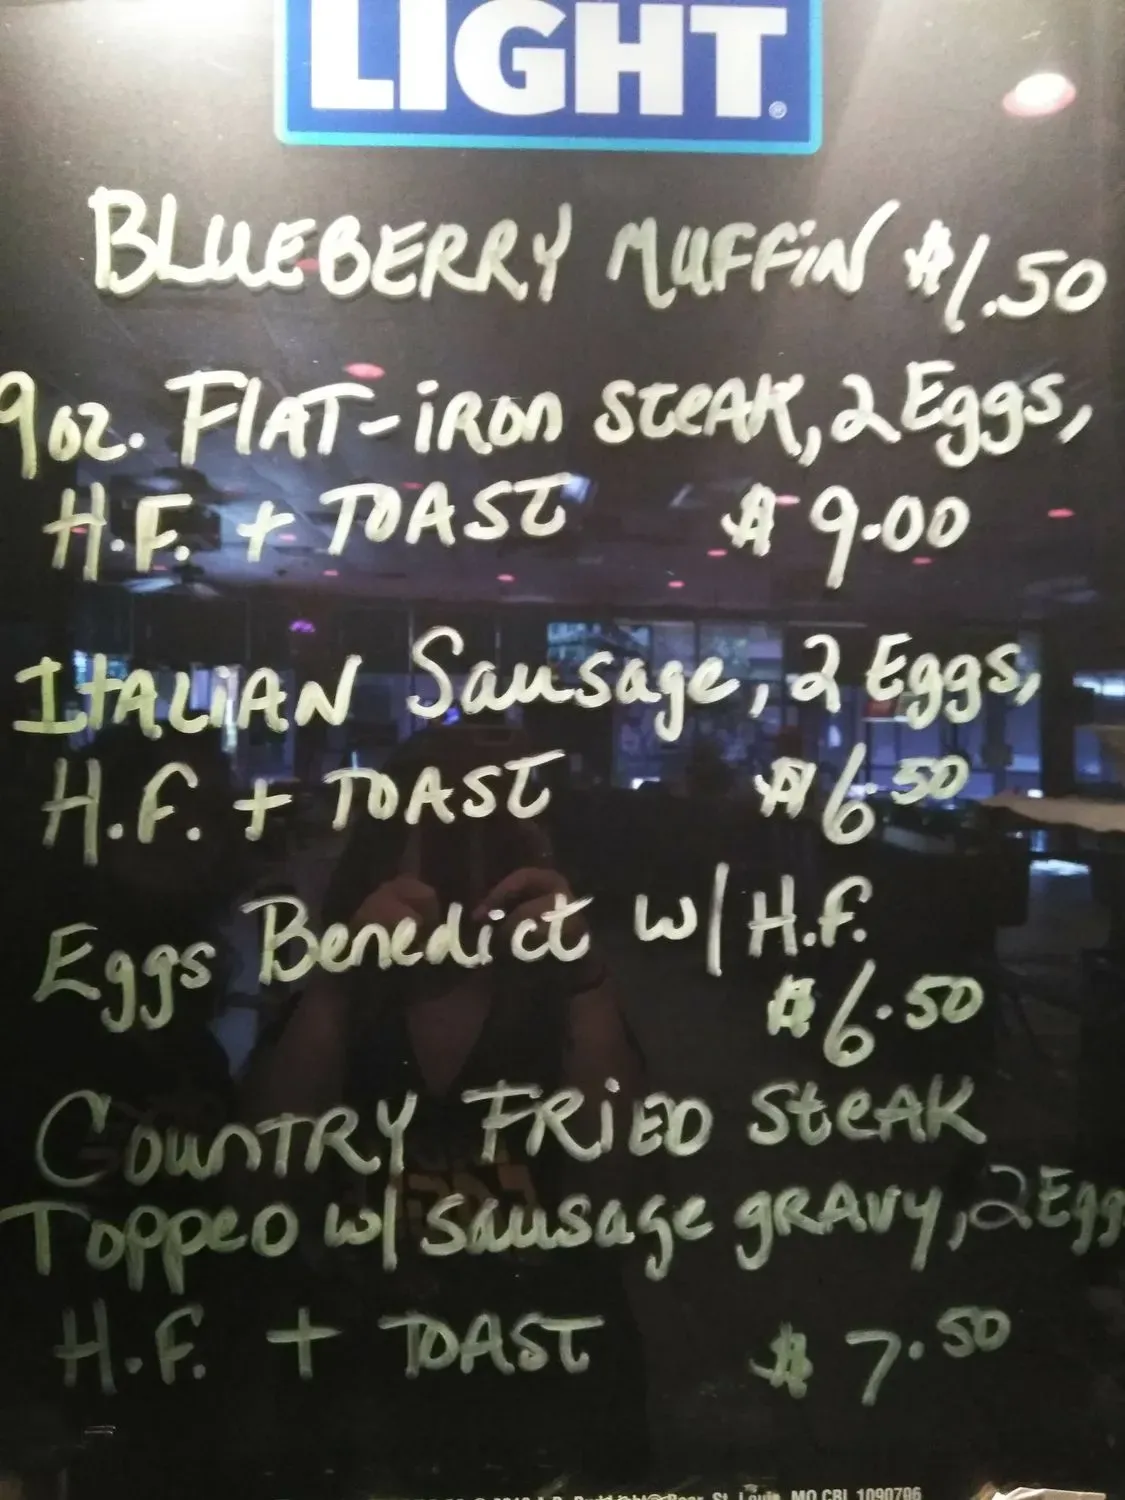 LIGHT®
BLUEBERRY MUFFiN $1.50
9oz. FLAT-iRon STeAK, 2 Eggs,
H.F. + TOAST $9.00
ITALiAN Sausage, 2 Eggs,
H.F. + TOAST $6.50
Eggs Benedict w/ H.F.
$6.50
COUnTRY FRiED STeAK
Topped w/ Sausage gRAvy, 2 Egg
H.F. + TOAST $7.50
Beer, St. Louis, MO CBL 1090706